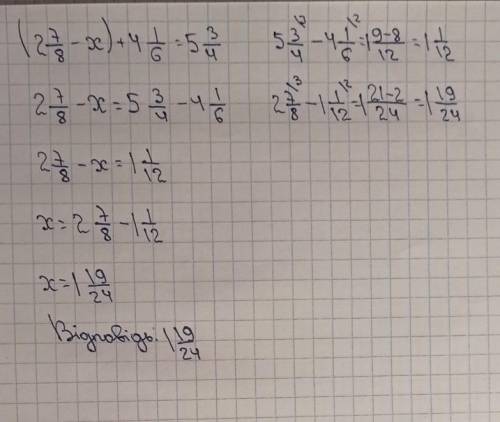 (2 7/8 - x) + 4 1/6 = 5 3/4
2 7/8 - x = 5 3/4 - 4 1/6
2 7/8 - x = 1 1/12
x = 2 7/8 - 1 1/12
x = 1 19/24
Відповідь: 1 19/24
5 3/4 - 4 1/6\2 = 1 9-8/12 = 1 1/12
2 7/8\3 - 1 1/12\2 = 1 21-2/24 = 1 19/24